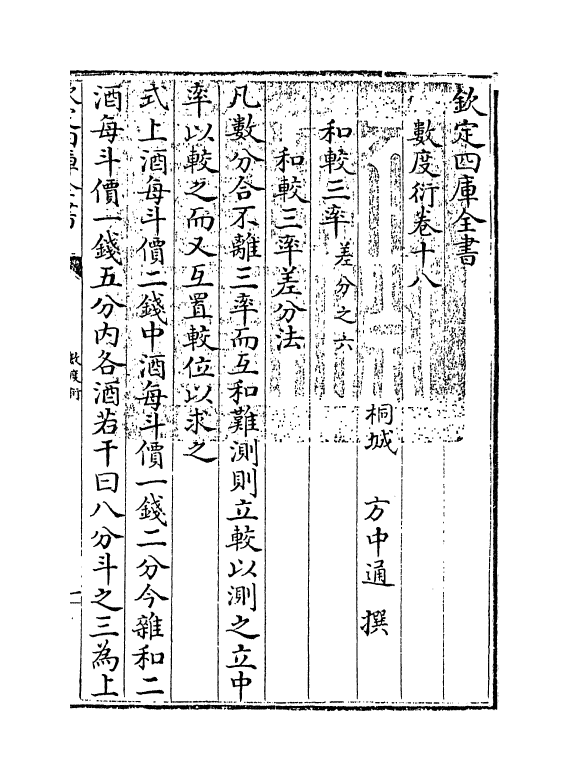 欽定四庫全書
數度衍卷十八
桐城　方中通　撰
和較三率差分之六
和較三率差分法
凡數分合不離三率而互和難測則立較以測之立中
率以較之而又互置較位以求之
式上酒每斗價二錢中酒每斗價一錢二分今雜和二
酒每斗價一錢五分內各酒若干曰八分斗之三為上
數度衍